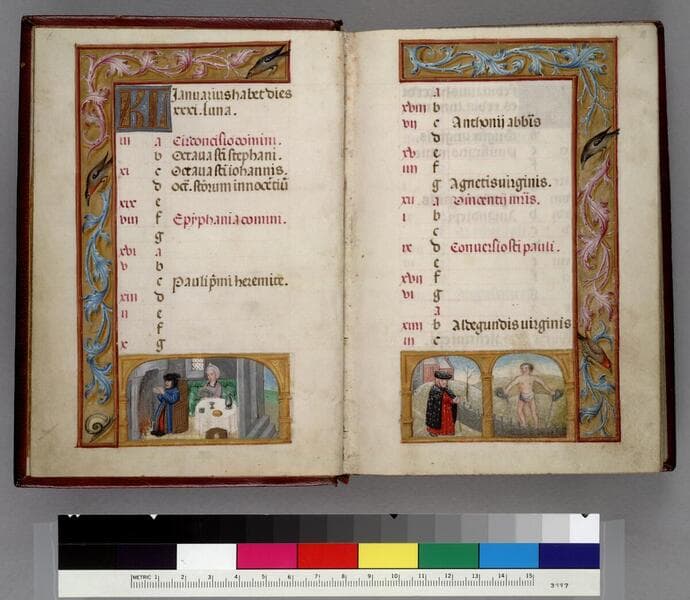 KL Januarius habet dies
xxxi. luna.
iii a Circoncisio domini.
b Octava sti stephani.
xi c Octava sti iohannis.
d oct. storum innocentiu
xix e
viii f Epyphania domini.
g
xvi a
v b
c Pauli pmi heremite.
xiii d
ii e
f
x g
a
xviii b
vii c Anthonij abbis
d
xv e
iiii f
g Agnetis virginis.
xii a Vincentij mris.
i b
c
ix d Conversio sti pauli.
e
xvii f
vi g
a
xiiii b Aldegundis virginis
iii c
METRIC 1 2 3 4 5 6 7 8 9 10 11 12 13 14 15